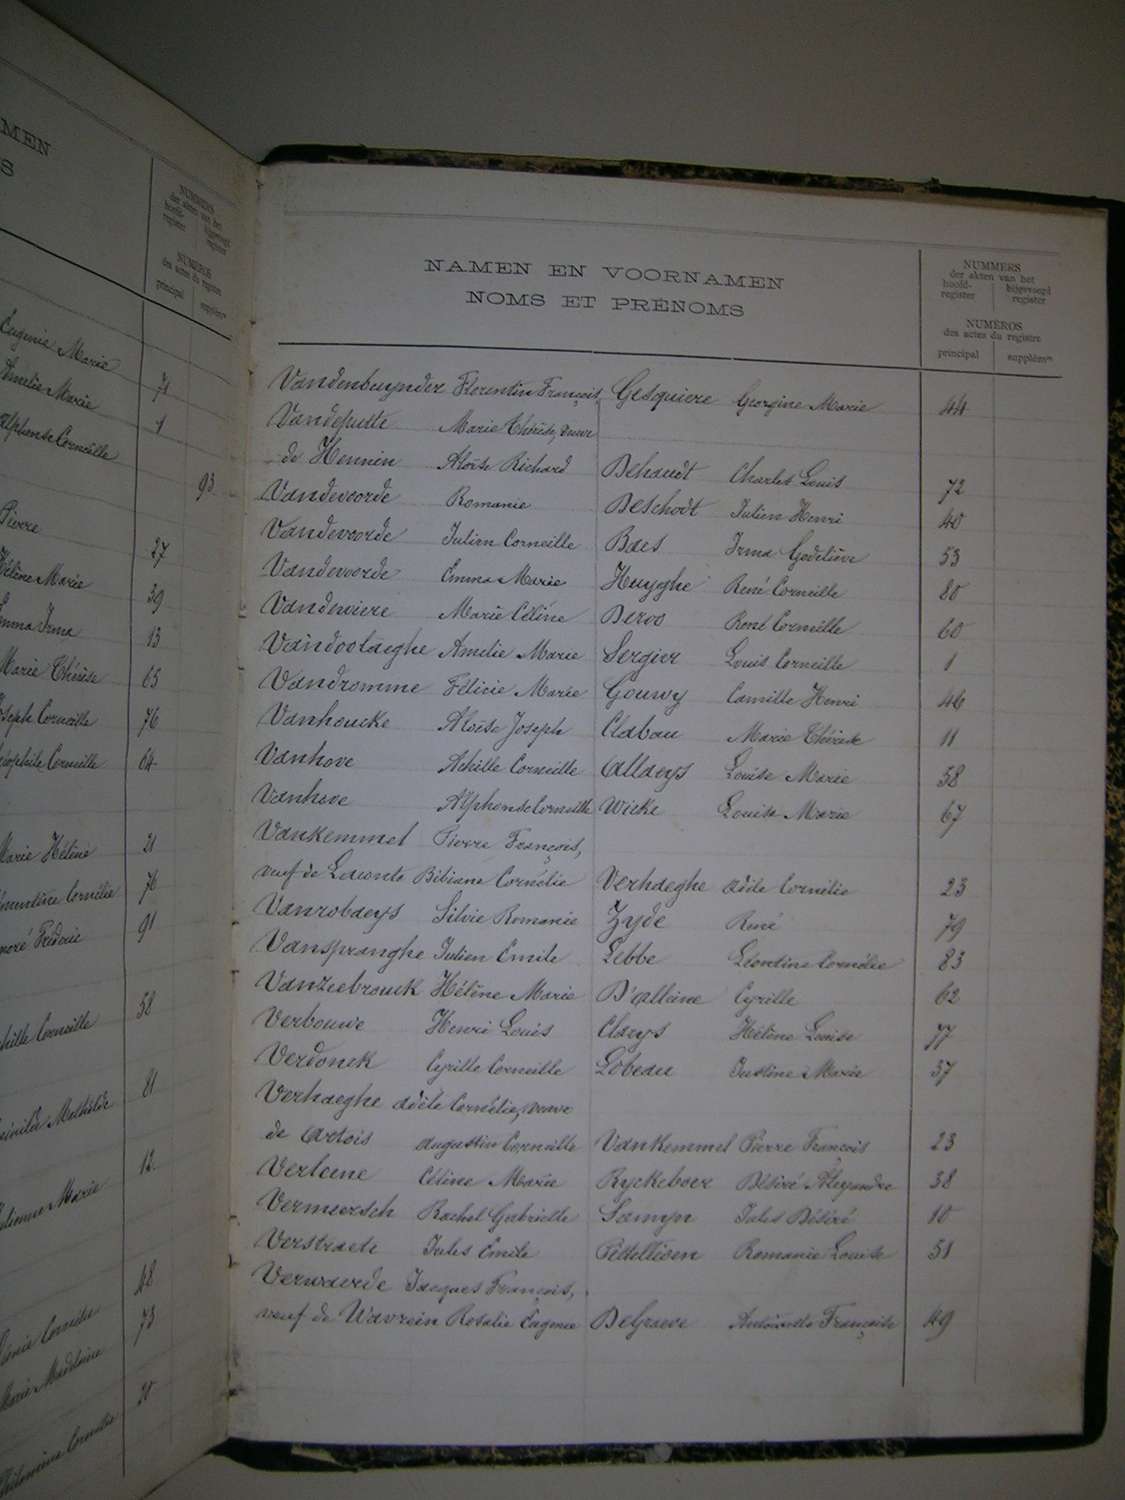 MEN
S
NUMMERS
der akten van het
hoofd-register bijgevoegd register
NUMÉROS
des actes du registre
principal supplém.re
Eugénie Marie 71
Amélie Marie 1
Alphonse Corneille 93
Pierre 27
Hélène Marie 39
Emma Irma 13
Marie Thérèse 65
Joseph Corneille 76
Théophile Corneille 64
Marie Hélène 21
Clémentine Cornélie 76
Honoré Fréderic 91
Achille Corneille 58
Mathilde 81
Julienne Marie 12
48
Cornélie 73
Marie Madeleine 20
Philomène Cornélie
NAMEN EN VOORNAMEN
NOMS ET PRÉNOMS
NUMMERS
der akten van het
hoofd-register bijgevoegd register
NUMÉROS
des actes du registre
principal supplém.re
Vandenbuynder Florentin François Gesquiere Georgine Marie 44
Vandeputte Marie Thérèse, veuve
de Hennin Aloïse Richard Dehaudt Charles Louis 72
Vandevoorde Romanie Deschodt Julien Henri 40
Vandevoorde Julien Corneille Baes Irma Godelieve 53
Vandevoorde Emma Marie Huyghe René Corneille 80
Vandewiere Marie Céline Deroo René Corneille 60
Vandootaeghe Amélie Marie Sergier Louis Corneille 1
Vandromme Félicie Marie Gouwy Camille Henri 46
Vanhoucke Aloïse Joseph Clabau Marie Thérèse 11
Vanhove Achille Corneille Allaeys Louise Marie 58
Vanhove Alphonse Corneille Wicke Louise Marie 67
Vankemmel Pierre François,
veuf de Leconte Bibiane Cornélie Verhaeghe Adèle Cornélie 23
Vanrobaeys Silvie Romanie Zyde René 79
Vanspranghe Julien Emile Lebbe Léontine Cornélie 83
Vanzeebrouck Hélène Marie D'alleine Cyrille 62
Verbouwe Henri Louis Claeys Hélène Louise 77
Verdonck Cyrille Corneille Lobeau Justine Marie 37
Verhaeghe Adèle Cornélie, veuve
de Artois Augustin Corneille Vankemmel Pierre François 23
Verleene Céline Marie Ryckeboer Désiré Alexandre 38
Vermeersch Rachel Gabrielle Samyn Jules Désiré 10
Verstraete Jules Emile Pittellioen Romanie Louise 51
Verwaerde Jacques François,
veuf de Wavrein Rosalie Eugenie DeGraeve Antoinette Françoise 49